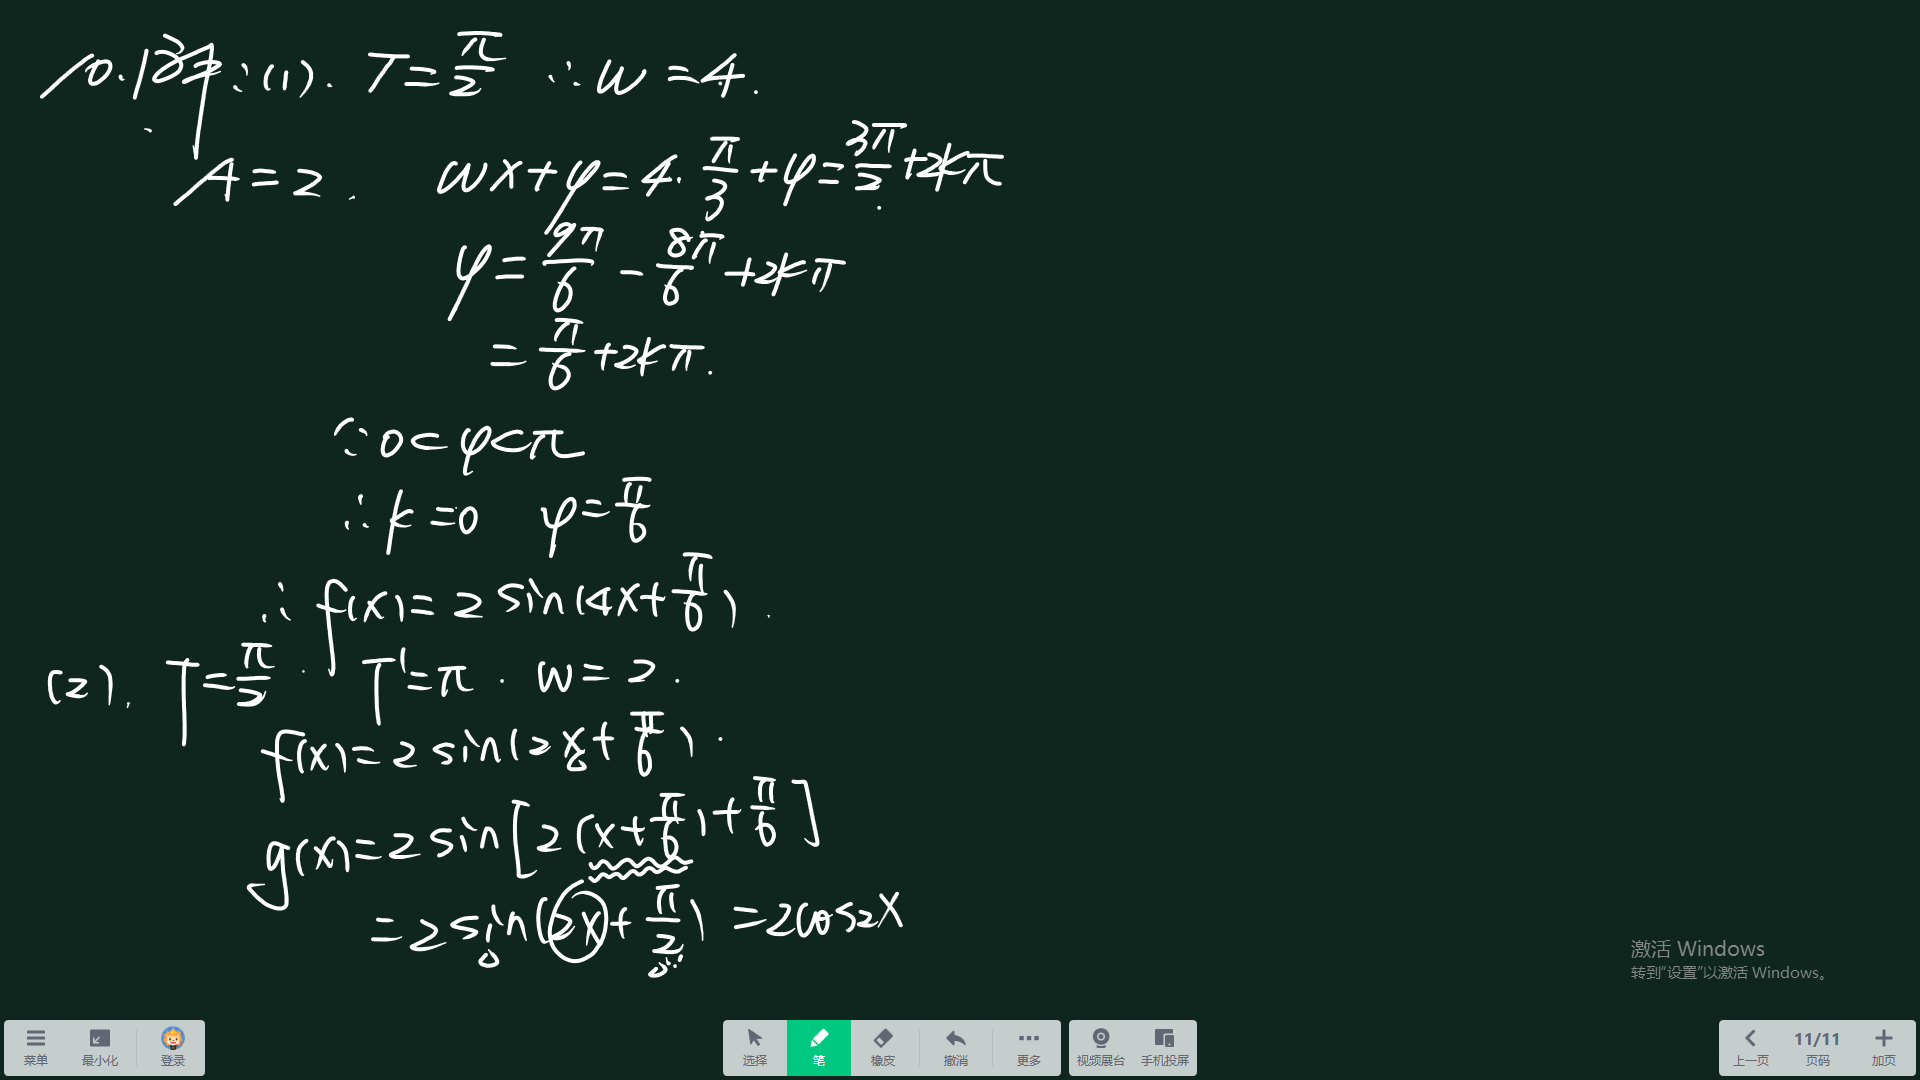 10. 解:(1). T=π/2 ∴w=4.
A=2. wx+φ=4·π/3+φ=3π/2+2kπ
φ=9π/6-8π/6+2kπ
=π/6+2kπ.
∵0<φ<π
∴k=0 φ=π/6
∴f(x)=2sin(4x+π/6).
(2). T=π/2. T'=π. w=2.
f(x)=2sin(2x+π/6).
g(x)=2sin[2(x+π/6)+π/6]
=2sin(2x+π/2)=2cos2x
激活 Windows
转到“设置”以激活 Windows。
菜单 最小化 登录 选择 笔 橡皮 撤消 更多 视频展台 手机投屏 上一页 11/11 页码 加页